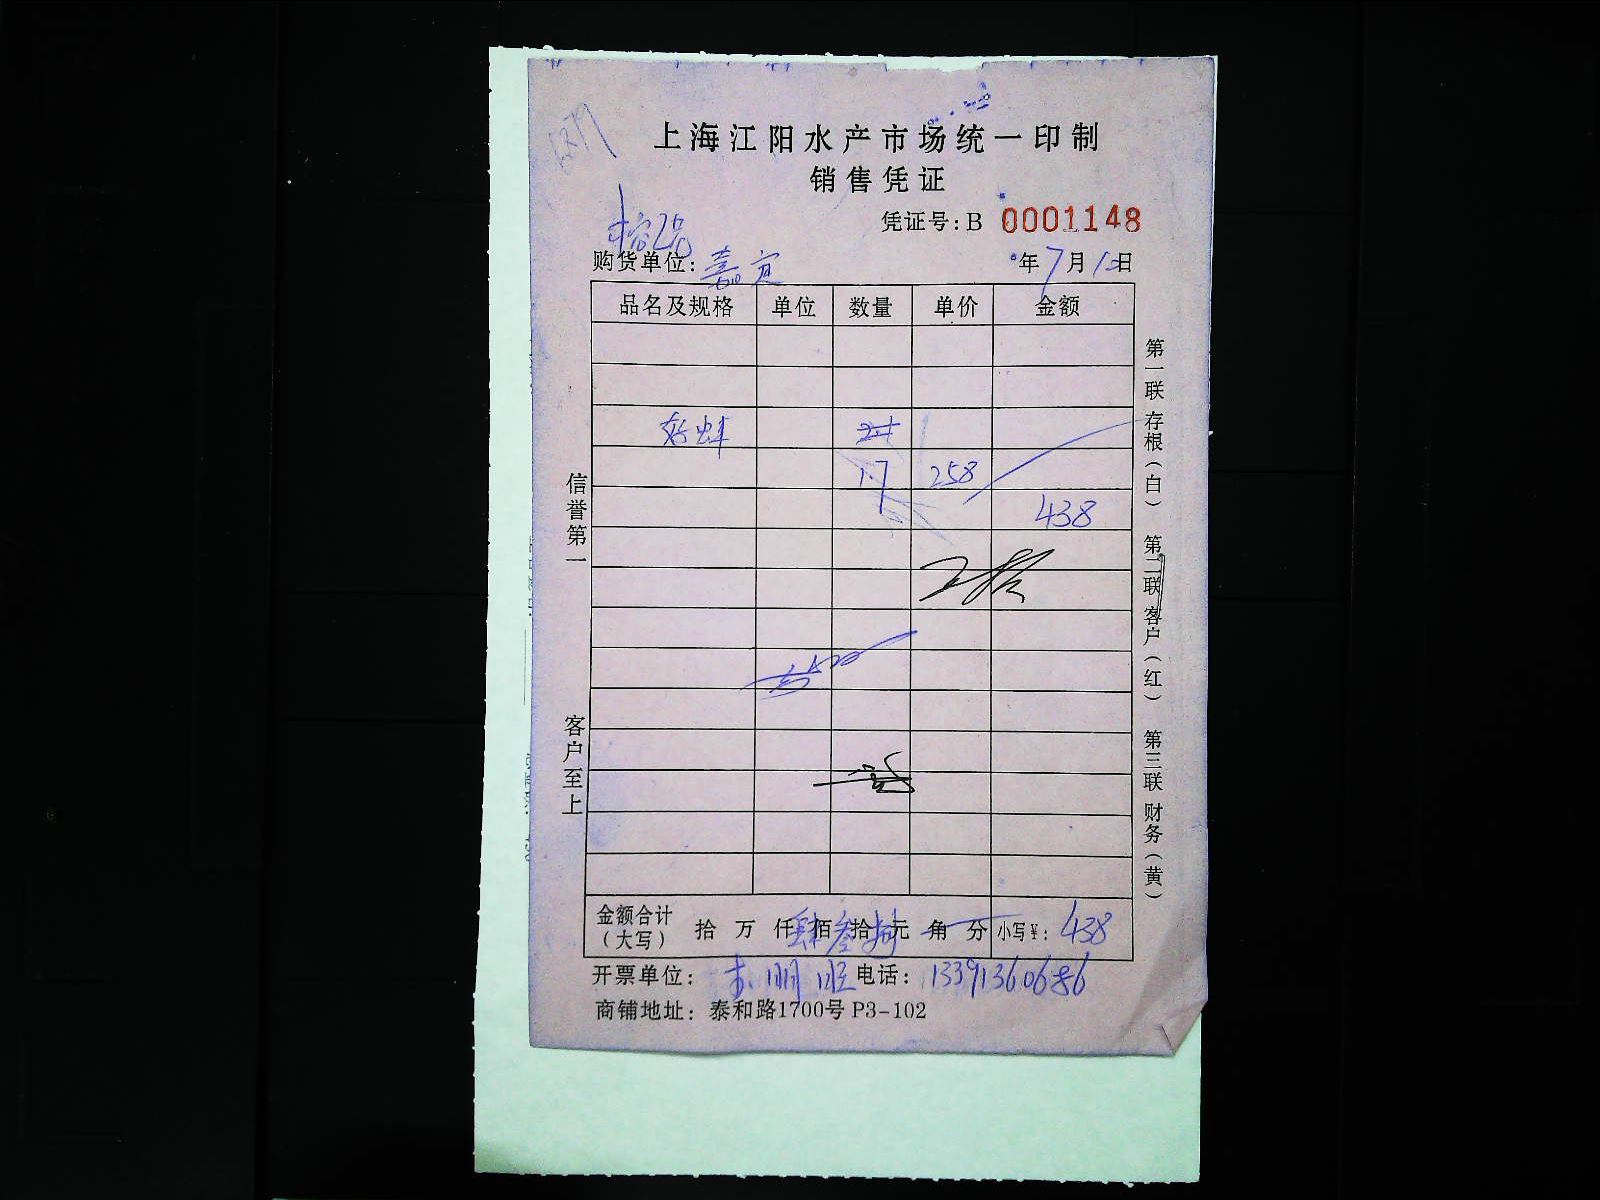 上海江阳水产市场统一印制
销售凭证
凭证号:B 0001148
购货单位: 嘉宜 年7月12日
品名及规格 单位 数量 单价 金额
1.7 258
438
信誉第一
客户至上
第一联 存根(白) 第二联 客户(红) 第三联 财务(黄)
金额合计(大写) 拾 万 仟肆佰叁拾捌元 角 分 小写¥: 438
开票单位: 电话: 13391360686
商铺地址: 泰和路1700号 P3-102